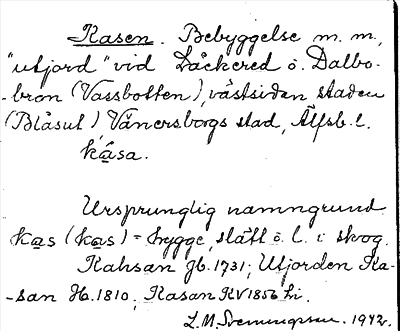 Kasen. Bebyggelse m. m.,
"utjord" vid Låckered ö. Dalbo-
-bron (Vassbotten), västsidan staden
(Blåsut), Vänersborgs stad, Älfsb. l.
kåsa.
Ursprunglig namngrund
kas (kas) = brygge, slätt ö. l. i skog.
Kahsan Jb. 1731; Utjorden Ka-
-san Jb. 1810; Kasan RV 1856
L. M. Svenungsson. 1942.